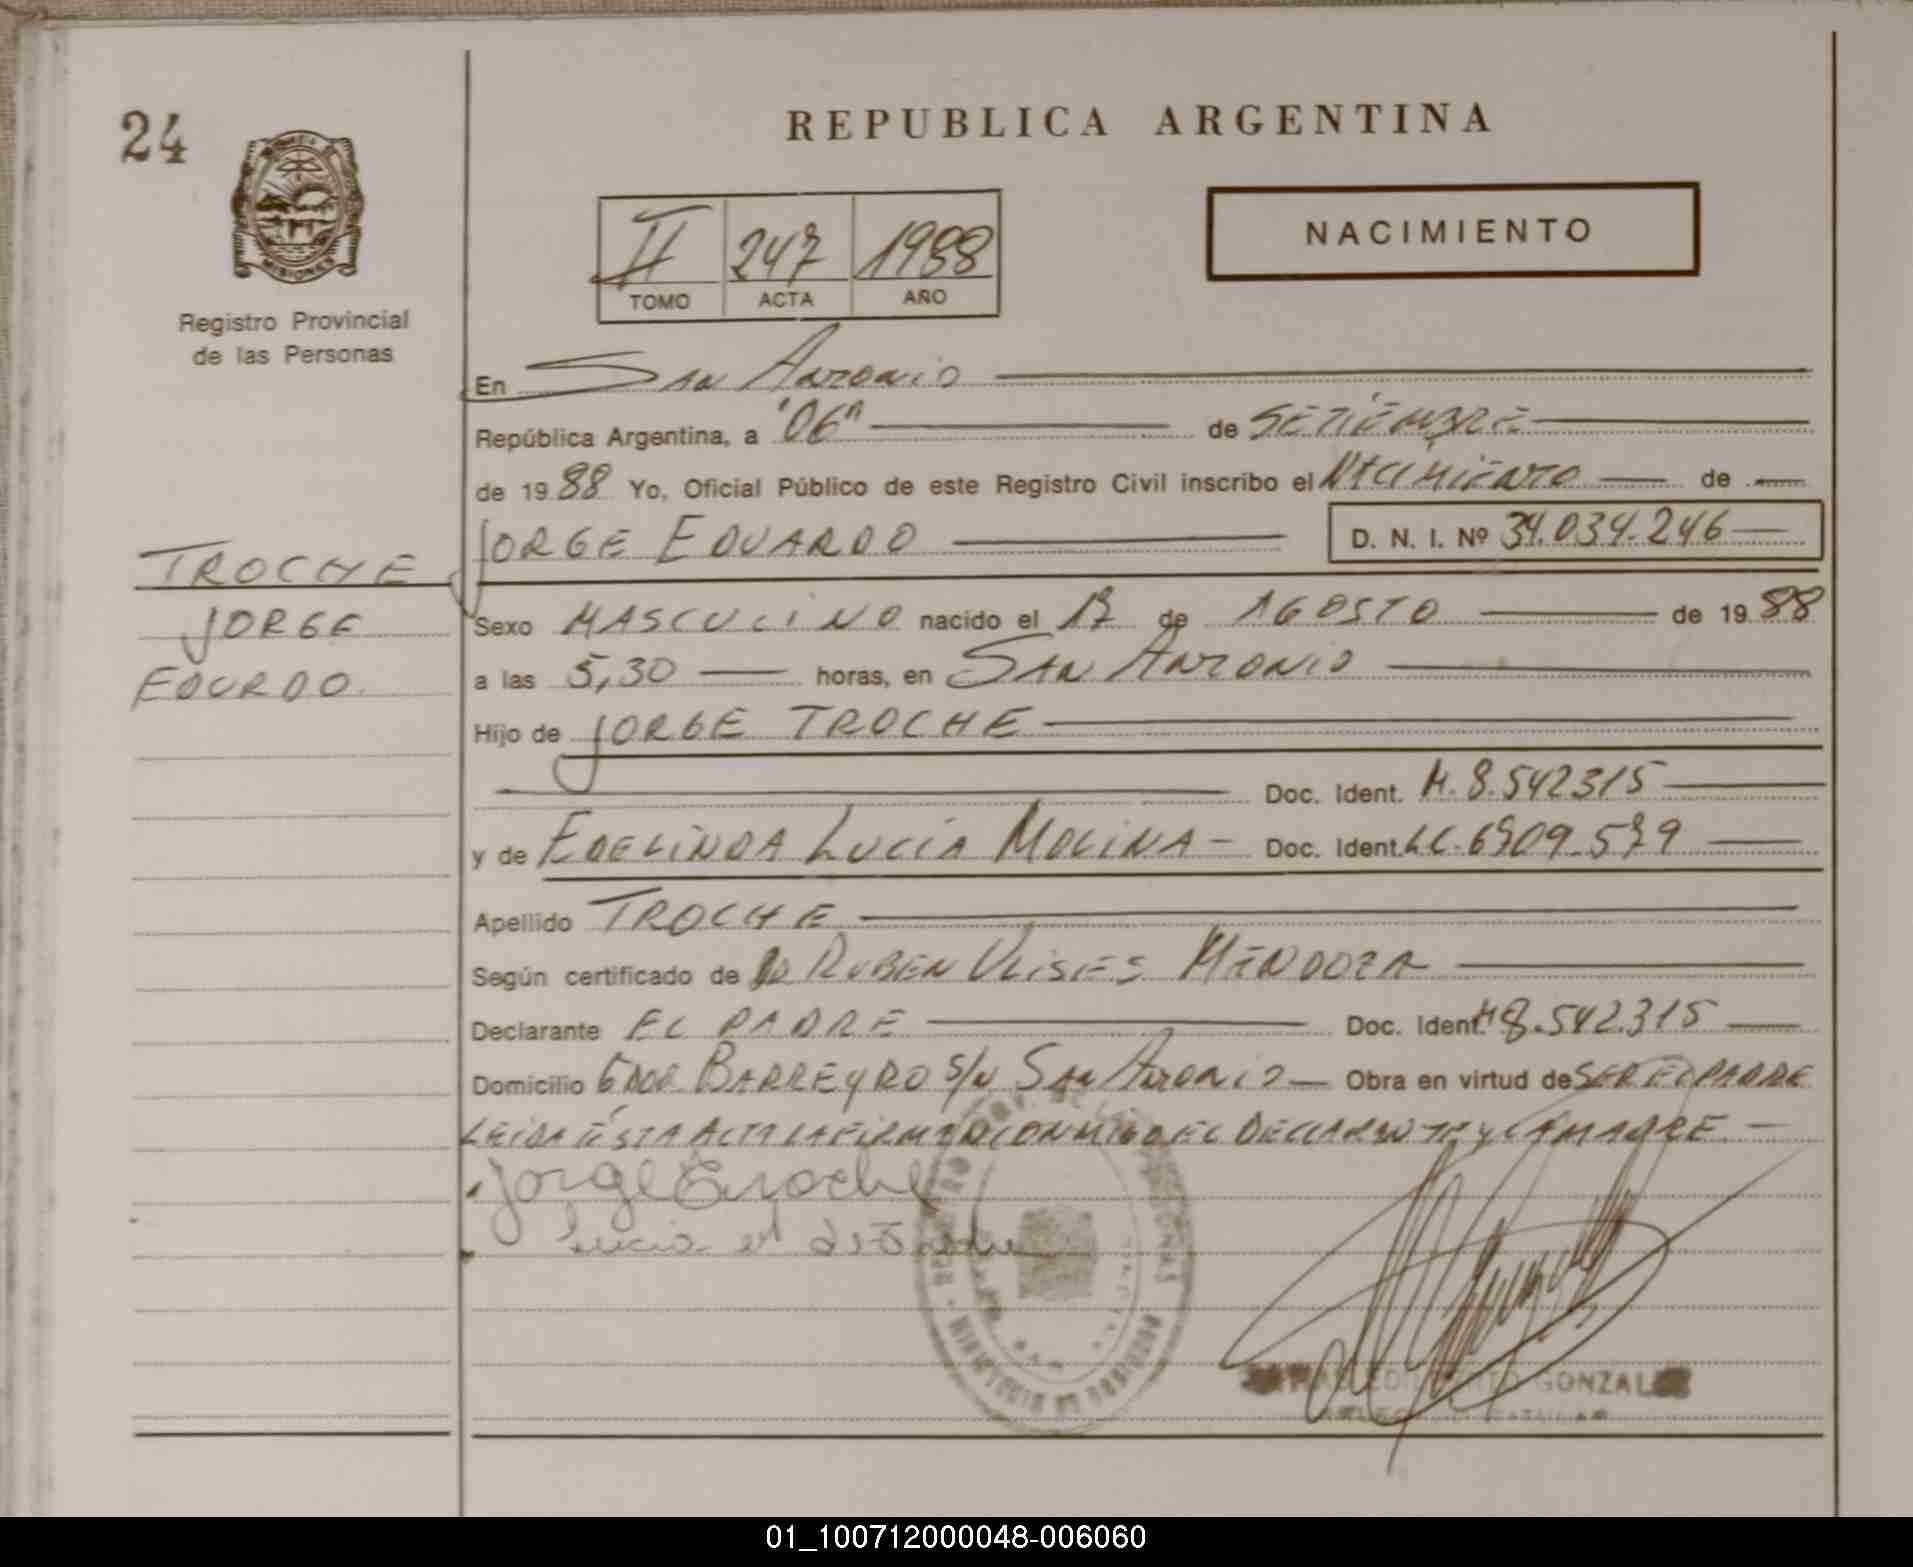 24
REPUBLICA ARGENTINA
MISIONES
Registro Provincial
de las Personas
II 247 1988
TOMO ACTA AÑO
NACIMIENTO
En San Antonio
República Argentina, a "06" de SETIEMBRE
de 1988 Yo, Oficial Público de este Registro Civil inscribo el NACIMIENTO de
JORGE EDUARDO D. N. I. Nº 34.034.246
TROCHE
JORGE
EDURDO.
Sexo MASCULINO nacido el 17 de AGOSTO de 1988
a las 5,30 horas, en SAN ANTONIO
Hijo de JORGE TROCHE
Doc. Ident. M. 8.542315
y de EDELINDA LUCIA MOLINA - Doc. Ident. LC. 6909.579
Apellido TROCHE
Según certificado de RUBEN ULISES MENDOZA
Declarante EL PADRE Doc. Ident. M 8.542.315
Domicilio BARREYRO S/N SAN ANTONIO Obra en virtud de SER EL PADRE
LEIDA ESTA ACTA LA FIRMAN CONMIGO EL DECLARANTE y LA MADRE
Jorge Troche
Lucia de Troche
GONZALEZ
01_100712000048-006060